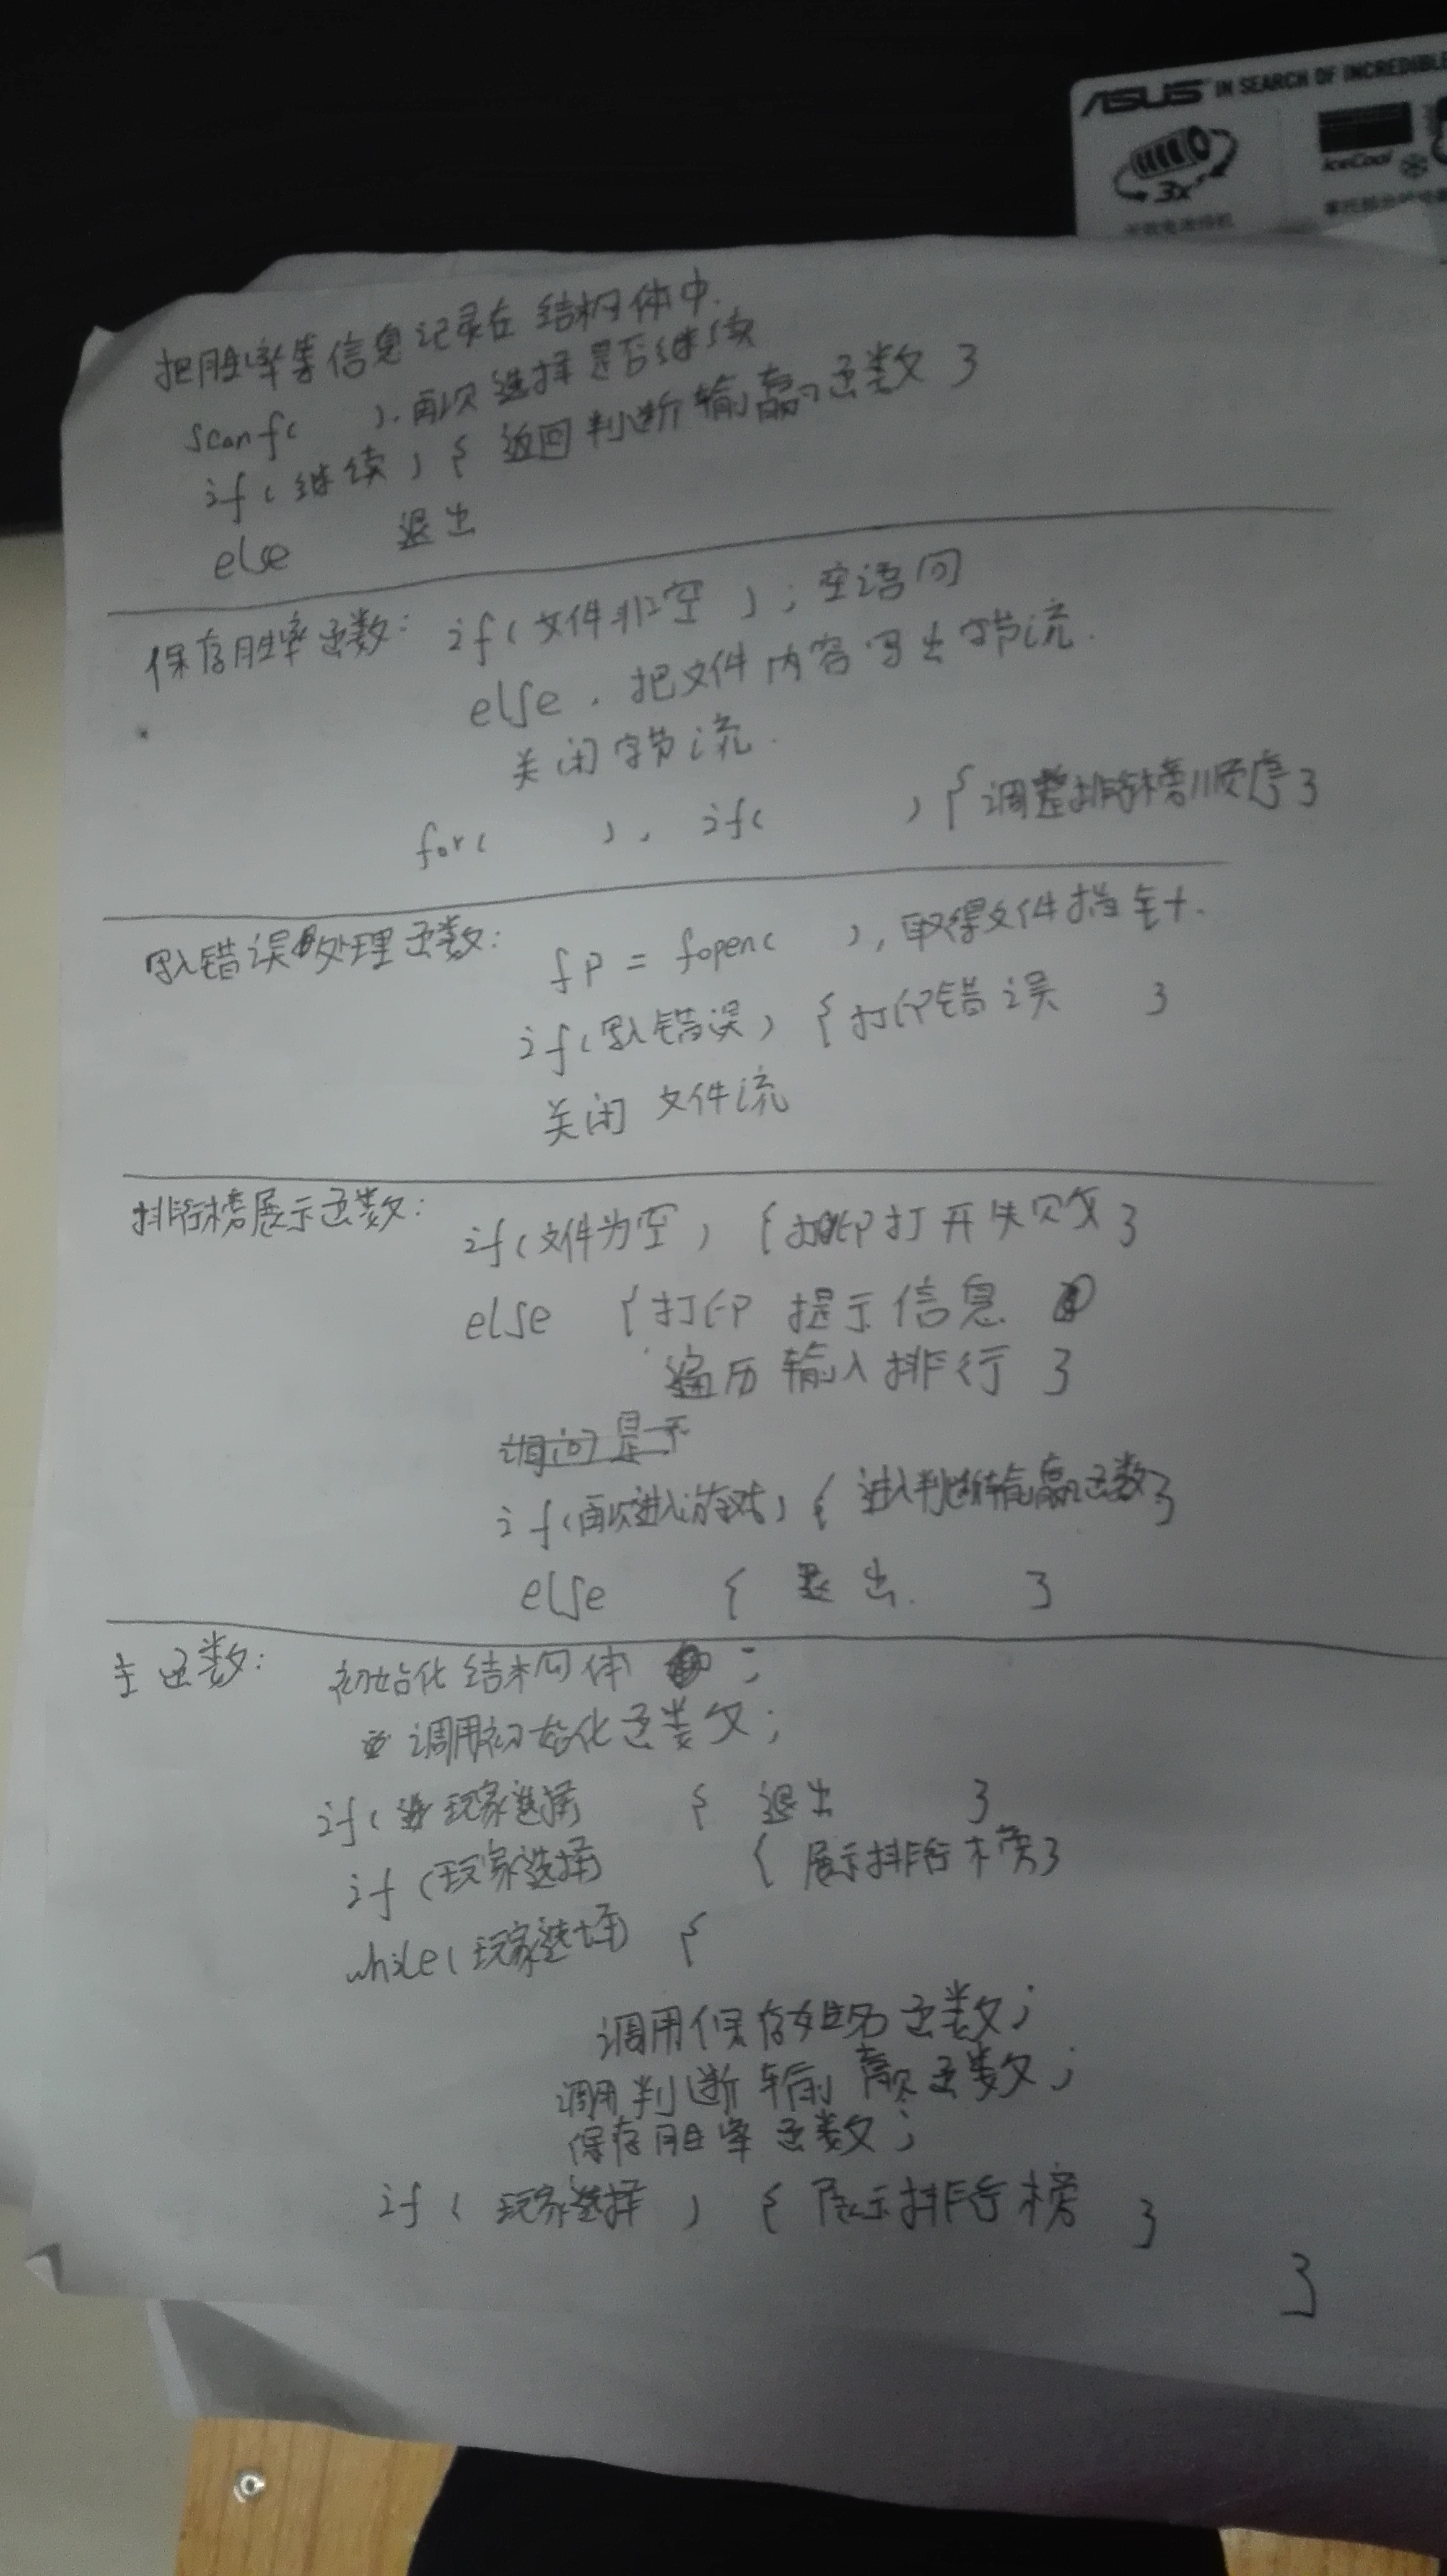 ASUS IN SEARCH OF INCREDIBLE
3x IceCool
把胜率等信息记录在结构体中.
scanf( ).再次选择是否继续
if(继续){返回判断输赢函数}
else 退出
保存胜率函数: if(文件非空);空语句
else,把文件内容写出字节流.
关闭字节流.
for( ), if( ){调整排行榜顺序}
写入错误处理函数: fp = fopen( ),取得文件指针.
if(写入错误){打印错误 }
关闭文件流
排行榜展示函数: if(文件为空){打印打开失败}
else {打印提示信息
遍历输入排行}
询问是否
if(再次进入游戏){进入判断输赢函数}
else {退出. }
主函数: 初始化结构体 ;
调用初始化函数;
if(玩家选择 {退出 }
if(玩家选择) {展示排行榜}
while(玩家选择) {
调用保存姓名函数;
调用判断输赢函数;
保存胜率函数;
if(玩家选择){展示排行榜 }
}